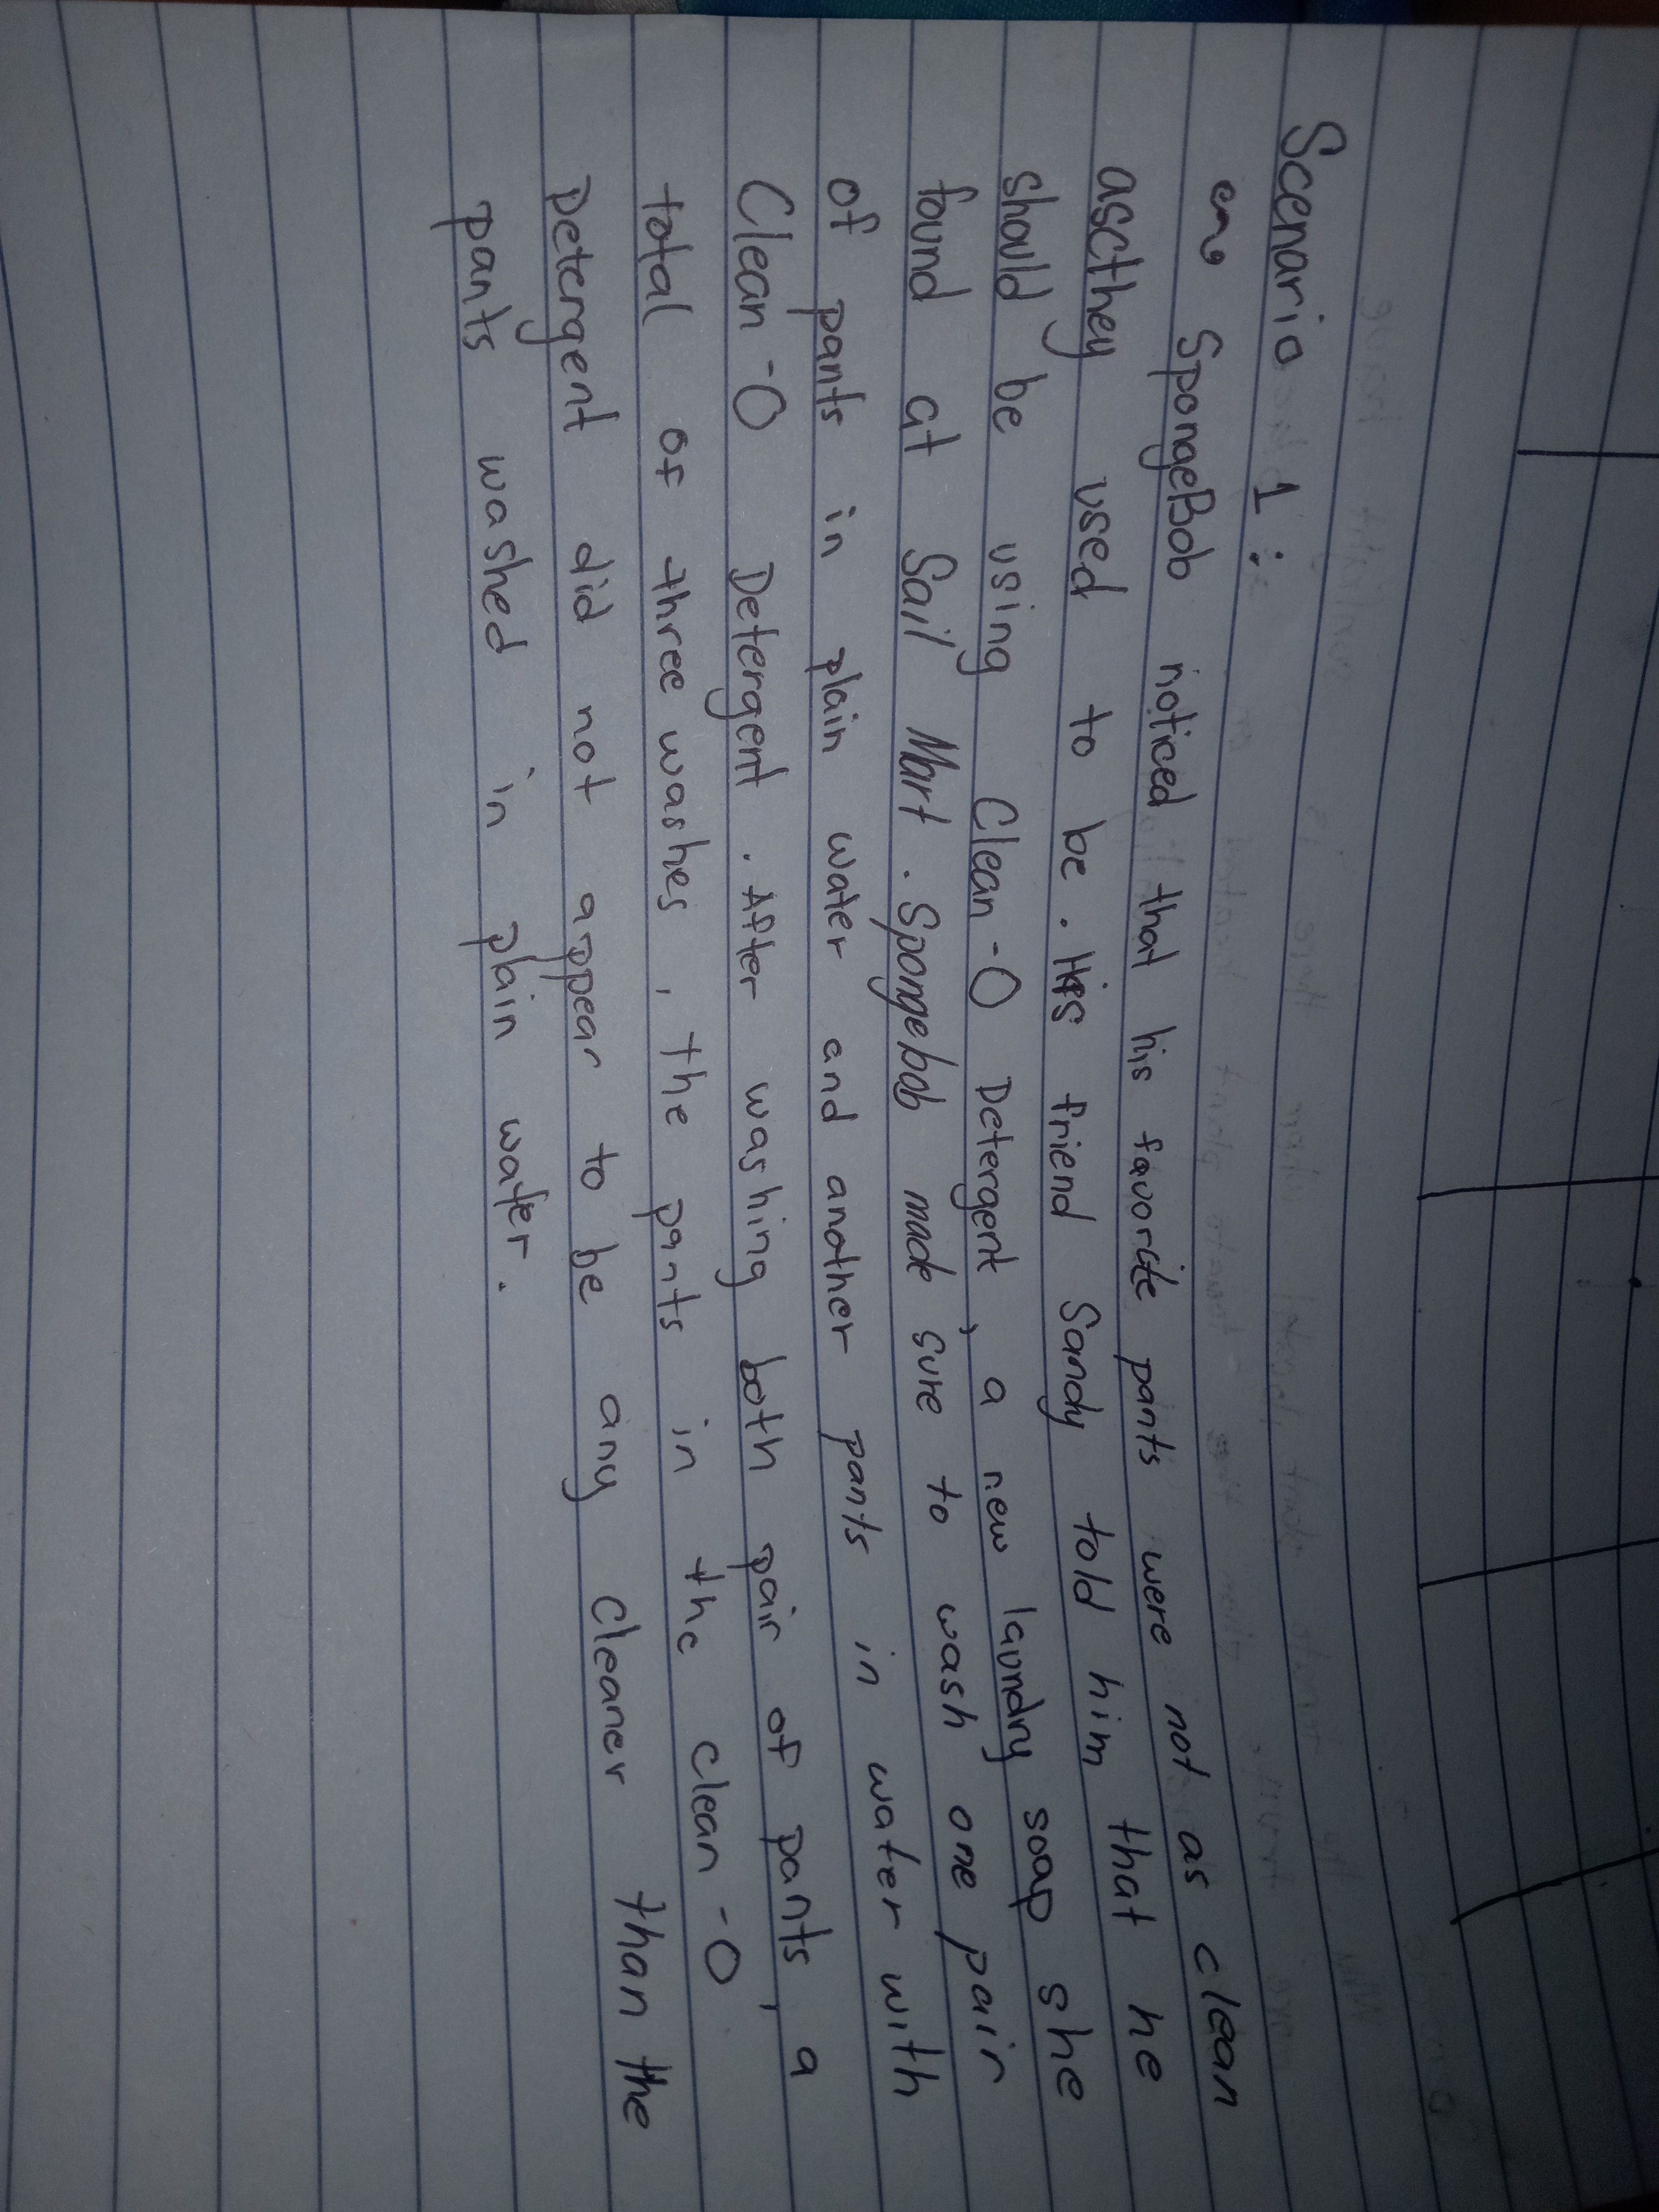 Scenario 1:
SpongeBob noticed that his favorite pants were not as clean
as they used to be. His friend Sandy told him that he
should be using Clean-O Detergent, a new laundry soap she
found at Sail Mart. Spongebob made sure to wash one pair
of pants in plain water and another pants in water with
Clean-O Detergent. After washing both pair of pants, a
total of three washes, the pants in the clean-O
Detergent did not appear to be any cleaner than the
pants washed in plain water.